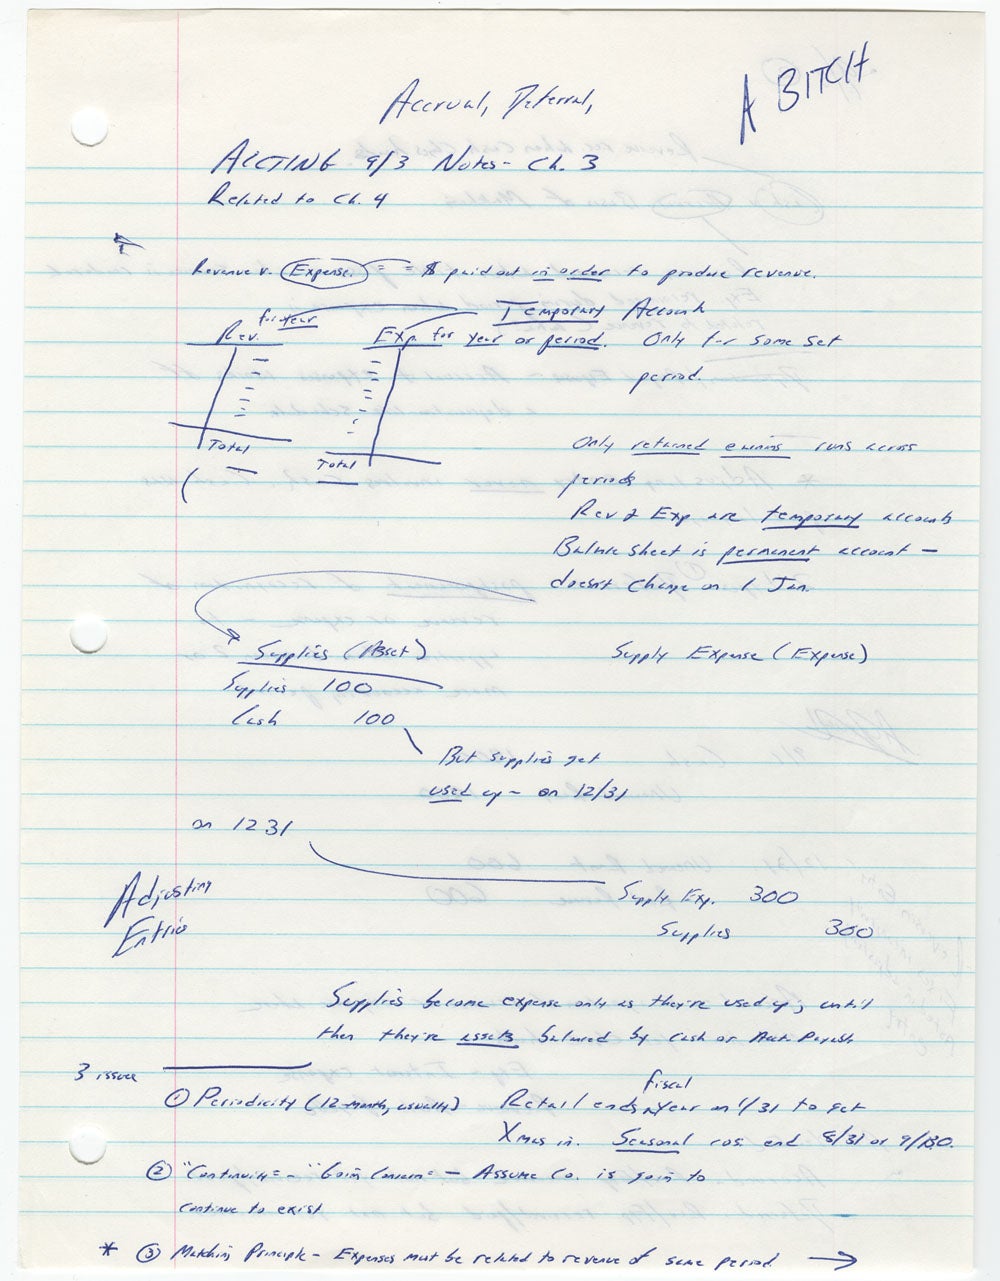 A BITCH
Accrual, Deferral,
ACCTING 9/3 Notes - Ch. 3
Related to Ch. 4
Revenue v. Expense = = $ paid out in order to produce revenue.
for year Temporary Accounts
Rev. Exp. for year or period. Only for some set
period.
Total
Total
Only retained earnins runs across
periods
Rev & Exp are temporary accounts
Balance sheet is permanent account -
doesn't change on 1 Jan.
Supplies (Asset) Supply Expense (Expense)
Supplies 100
Cash 100
But supplies get
used up - on 12/31
on 1231
Adjusting
Entries
Supply Exp. 300
Supplies 300
Supplies become expense only as they're used up; until
then they're assets balanced by cash or Acct. Payable
3 issues
① Periodicity (12-month, usually) Retail ends fiscal year on 1/31 to get
Xmas in. Seasonal cos. end 8/31 or 9/30.
② "Continuity" - "Goin Concern" - Assume Co. is goin to
continue to exist
* ③ Matching Principle - Expenses must be related to revenue of same period →